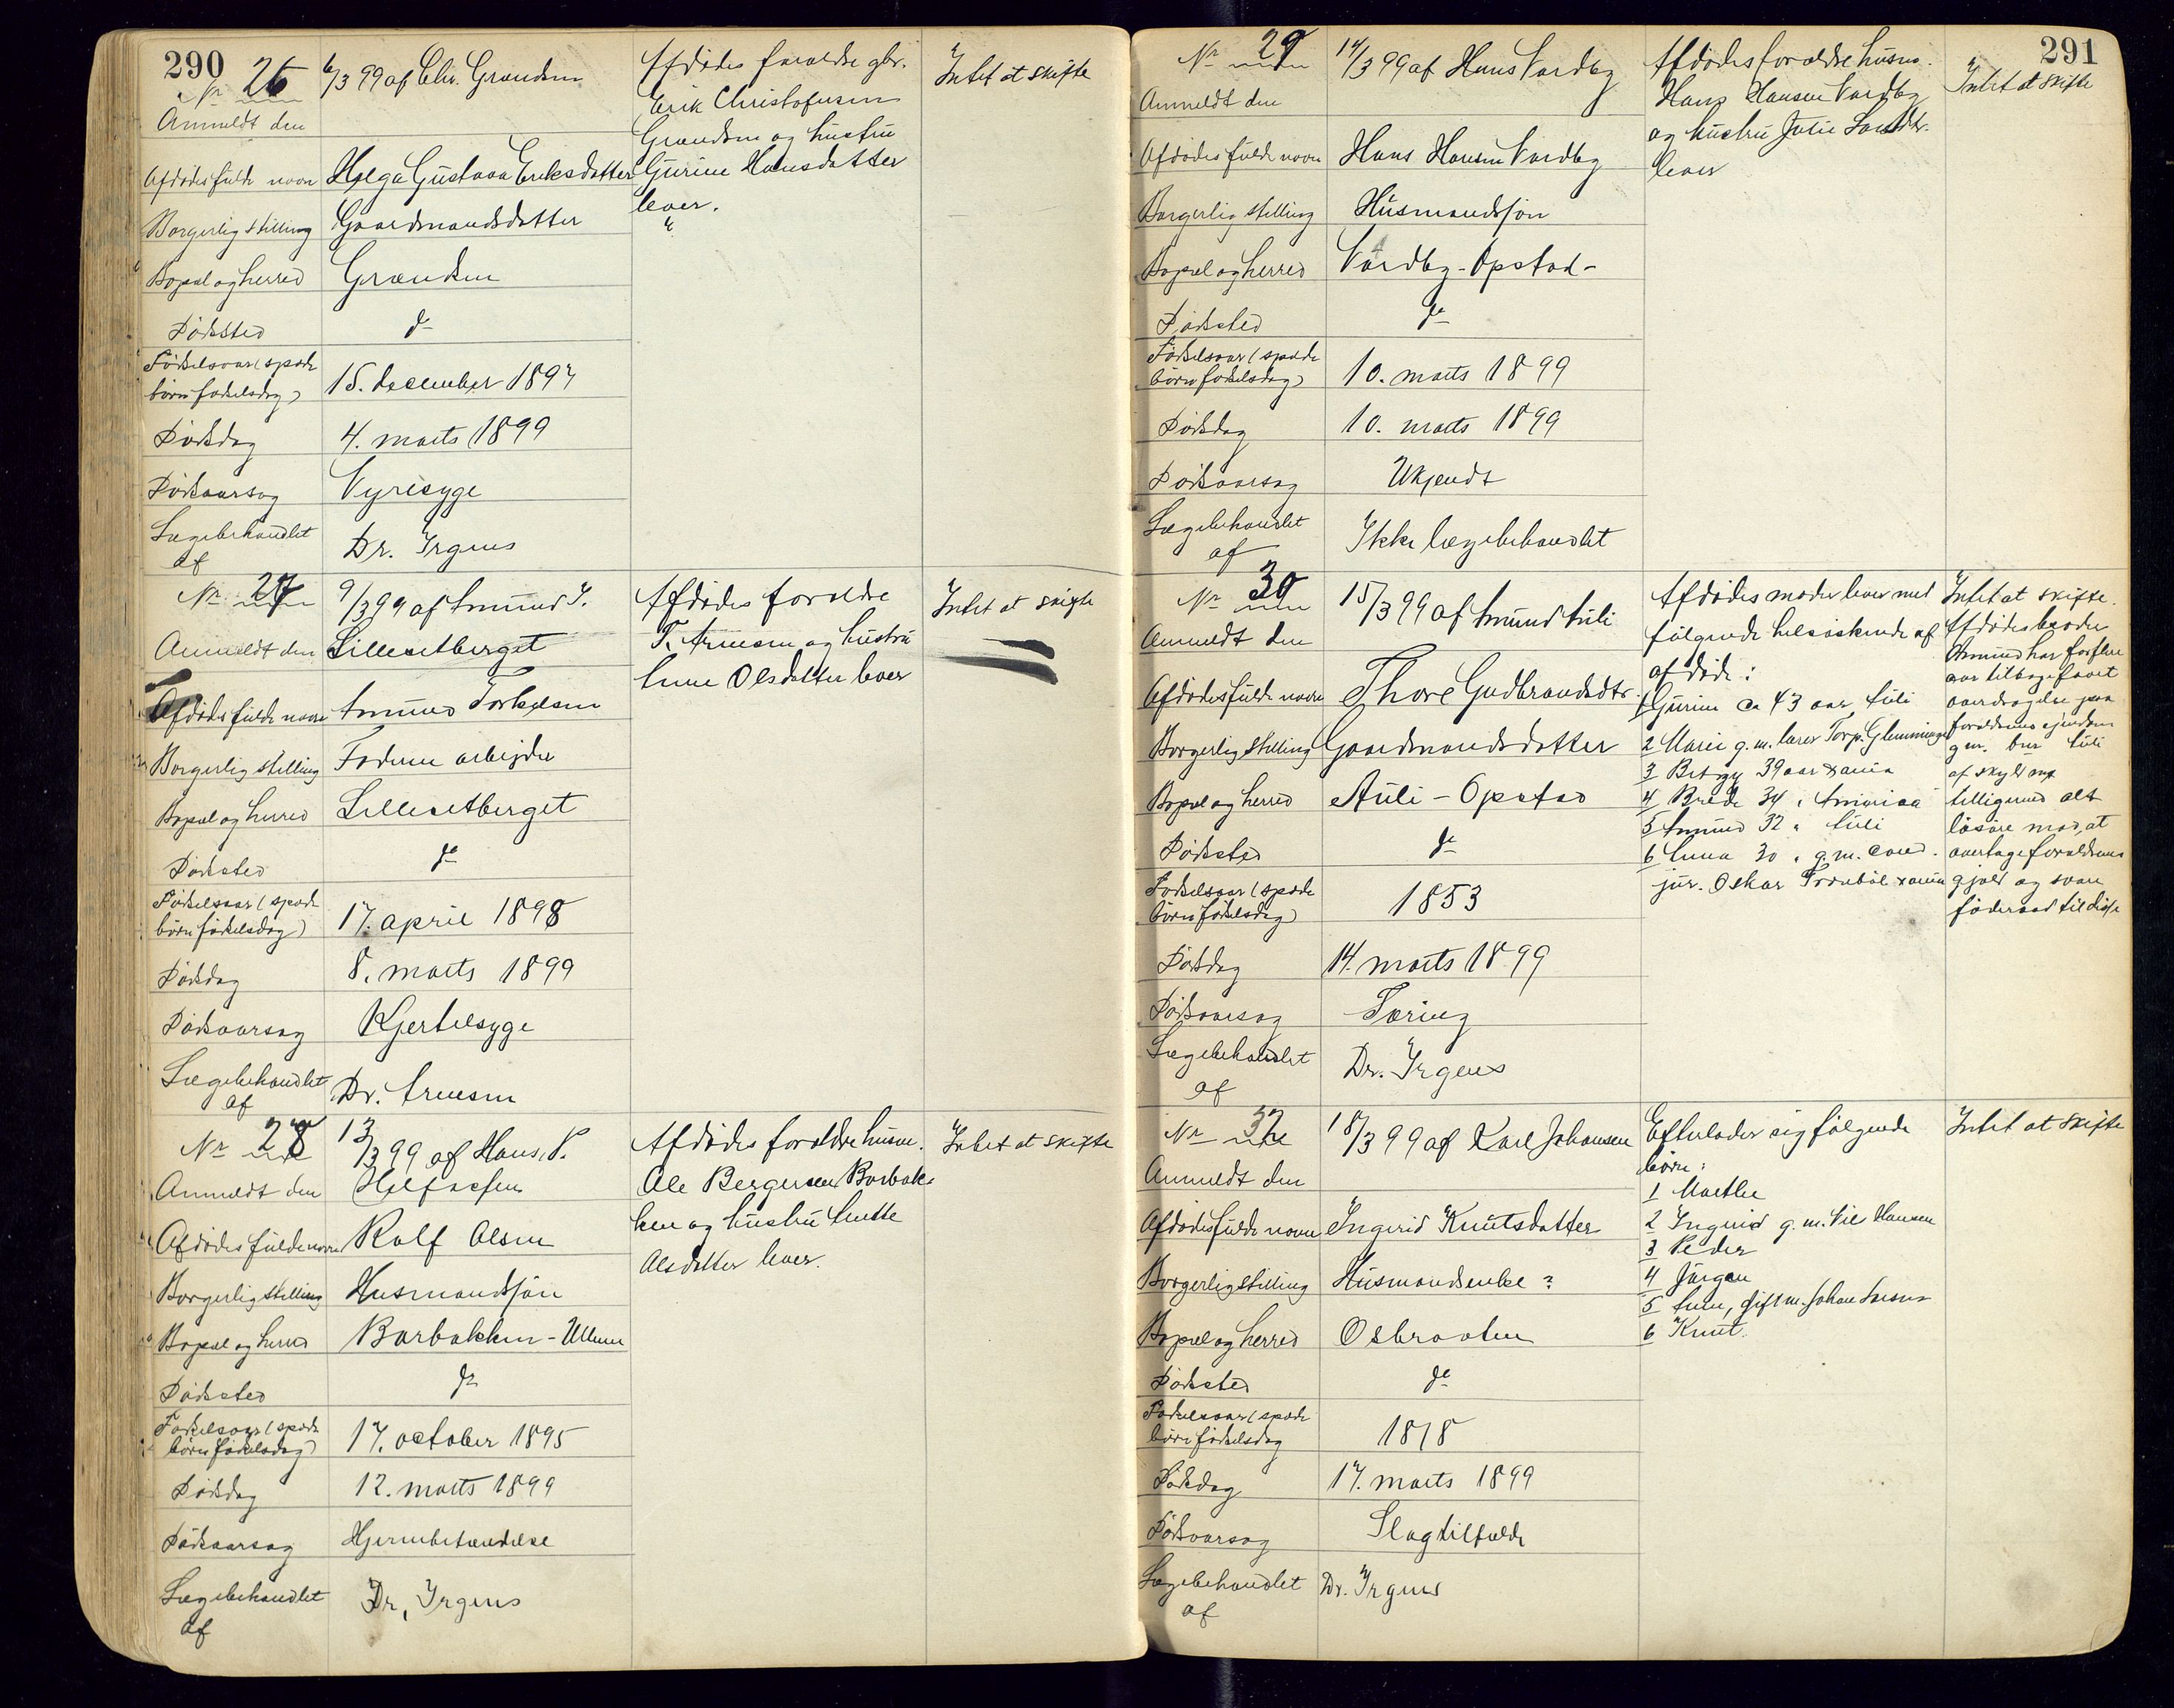 290
Nr 26
6/3 99 af Chr. Grandem
Anmeldt den
Afdødes fulde navn Helga Gustava Eriksdatter
Borgerlig stilling Gaardmandsdatter
Bopæl og herred Grandem
Dødssted do
Fødselsaar (spæde
børns fødselsdag) 15. december 1897
Dødsdag 4. marts 1899
Dødsaarsag Nyresyge
Lægebehandlet
af Dr. Irgens
Afdødes forældre gbr.
Erik Christofersen
Grandem og hustru
Gurine Hansdatter
lever.
Intet at skifte
Nr 27
9/3 99 af Amund T.
Anmeldt den Lillesetberget
Afdødes fulde navn Amund Torkelsen
Borgerlig stilling Faderen arbejder
Bopæl og herred Lillesetberget
Dødssted do
Fødselsaar (spæde
børns fødselsdag) 17. april 1898
Dødsdag 8. marts 1899
Dødsaarsag Kjertelsyge
Lægebehandlet
af Dr. Arnesen
Afdødes forældre
T. Arnesen og hustru
Anne Olsdatter lever
Intet at skifte
Nr 28
13/3 99 af Hans P.
Anmeldt den
Afdødes fulde navn Rolf Olsen
Borgerlig stilling Husmandssøn
Bopæl og herred Barbakken - Ullern
Dødssted do
Fødselsaar (spæde
børns fødselsdag) 17. october 1895
Dødsdag 12. marts 1899
Dødsaarsag Hjernebetændelse
Lægebehandlet
af Dr. Irgens
Afdødes forældre husm.
Ole Bergersen Barbak-
ken og hustru Anette
Olsdatter lever.
Intet at skifte
291
Nr 29
14/3 99 af Hans Vardbg
Anmeldt den
Afdødes fulde navn Hans Hansen Vardbg
Borgerlig stilling Husmandssøn
Bopæl og herred Vardbg - Opstad -
Dødssted do
Fødselsaar (spæde
børns fødselsdag) 10. marts 1899
Dødsdag 10. marts 1899
Dødsaarsag Ukjendt
Lægebehandlet
af Ikke lægebehandlet
Afdødes forældre husm.
Hans Hansen Vardbg
og hustru Julie Larsdtr.
lever
Intet at skifte
Nr 30
15/3 99 af Amund Auli
Anmeldt den
Afdødes fulde navn Thore Gudbrandsdtr.
Borgerlig stilling Gaardmandsdatter
Bopæl og herred Auli - Opstad
Dødssted do
Fødselsaar (spæde
børns fødselsdag) 1853
Dødsdag 14. marts 1899
Dødsaarsag Tæring
Lægebehandlet
af Dr. Irgens
Afdødes moder lever med
følgende helsøskende af
afdøde:
1 Gurine ca 43 aar Auli
2 Marie g. m. lærer Torp. Glemminge
3 39 aar Xania
4 Brede 34 " Amerika
5 Amund 32 " Auli
6 Anna 30 " g. m. cand.
jur. Oskar Tranbøl Xania
Intet at skifte.
Afdødes broder
Amund har for flere
aar tilbage faaet
overdragelse paa
forældrenes ejendom
Auli
af skyld
tilligemed alt
løsøre mod, at
overtage forældrenes
gjæld og svare
føderaad til disse
Nr 31
18/3 99 af Karl Johansen
Anmeldt den
Afdødes fulde navn Ingerid Knutsdatter
Borgerlig stilling Husmandsenke ?
Bopæl og herred Osbraaten
Dødssted do
Fødselsaar (spæde
børns fødselsdag 1818
Dødsdag 17. marts 1899
Dødsaarsag Slagtilfælde
Lægebehandlet Dr. Irgens
af
Efterlader sig følgende
børn:
1 Marthe
2 Ingerid g. m. Nils Hansen
3 Peder
4 Jørgen
5 Anne, gift m. Johan Larsen
6 Knut.
Intet at skifte